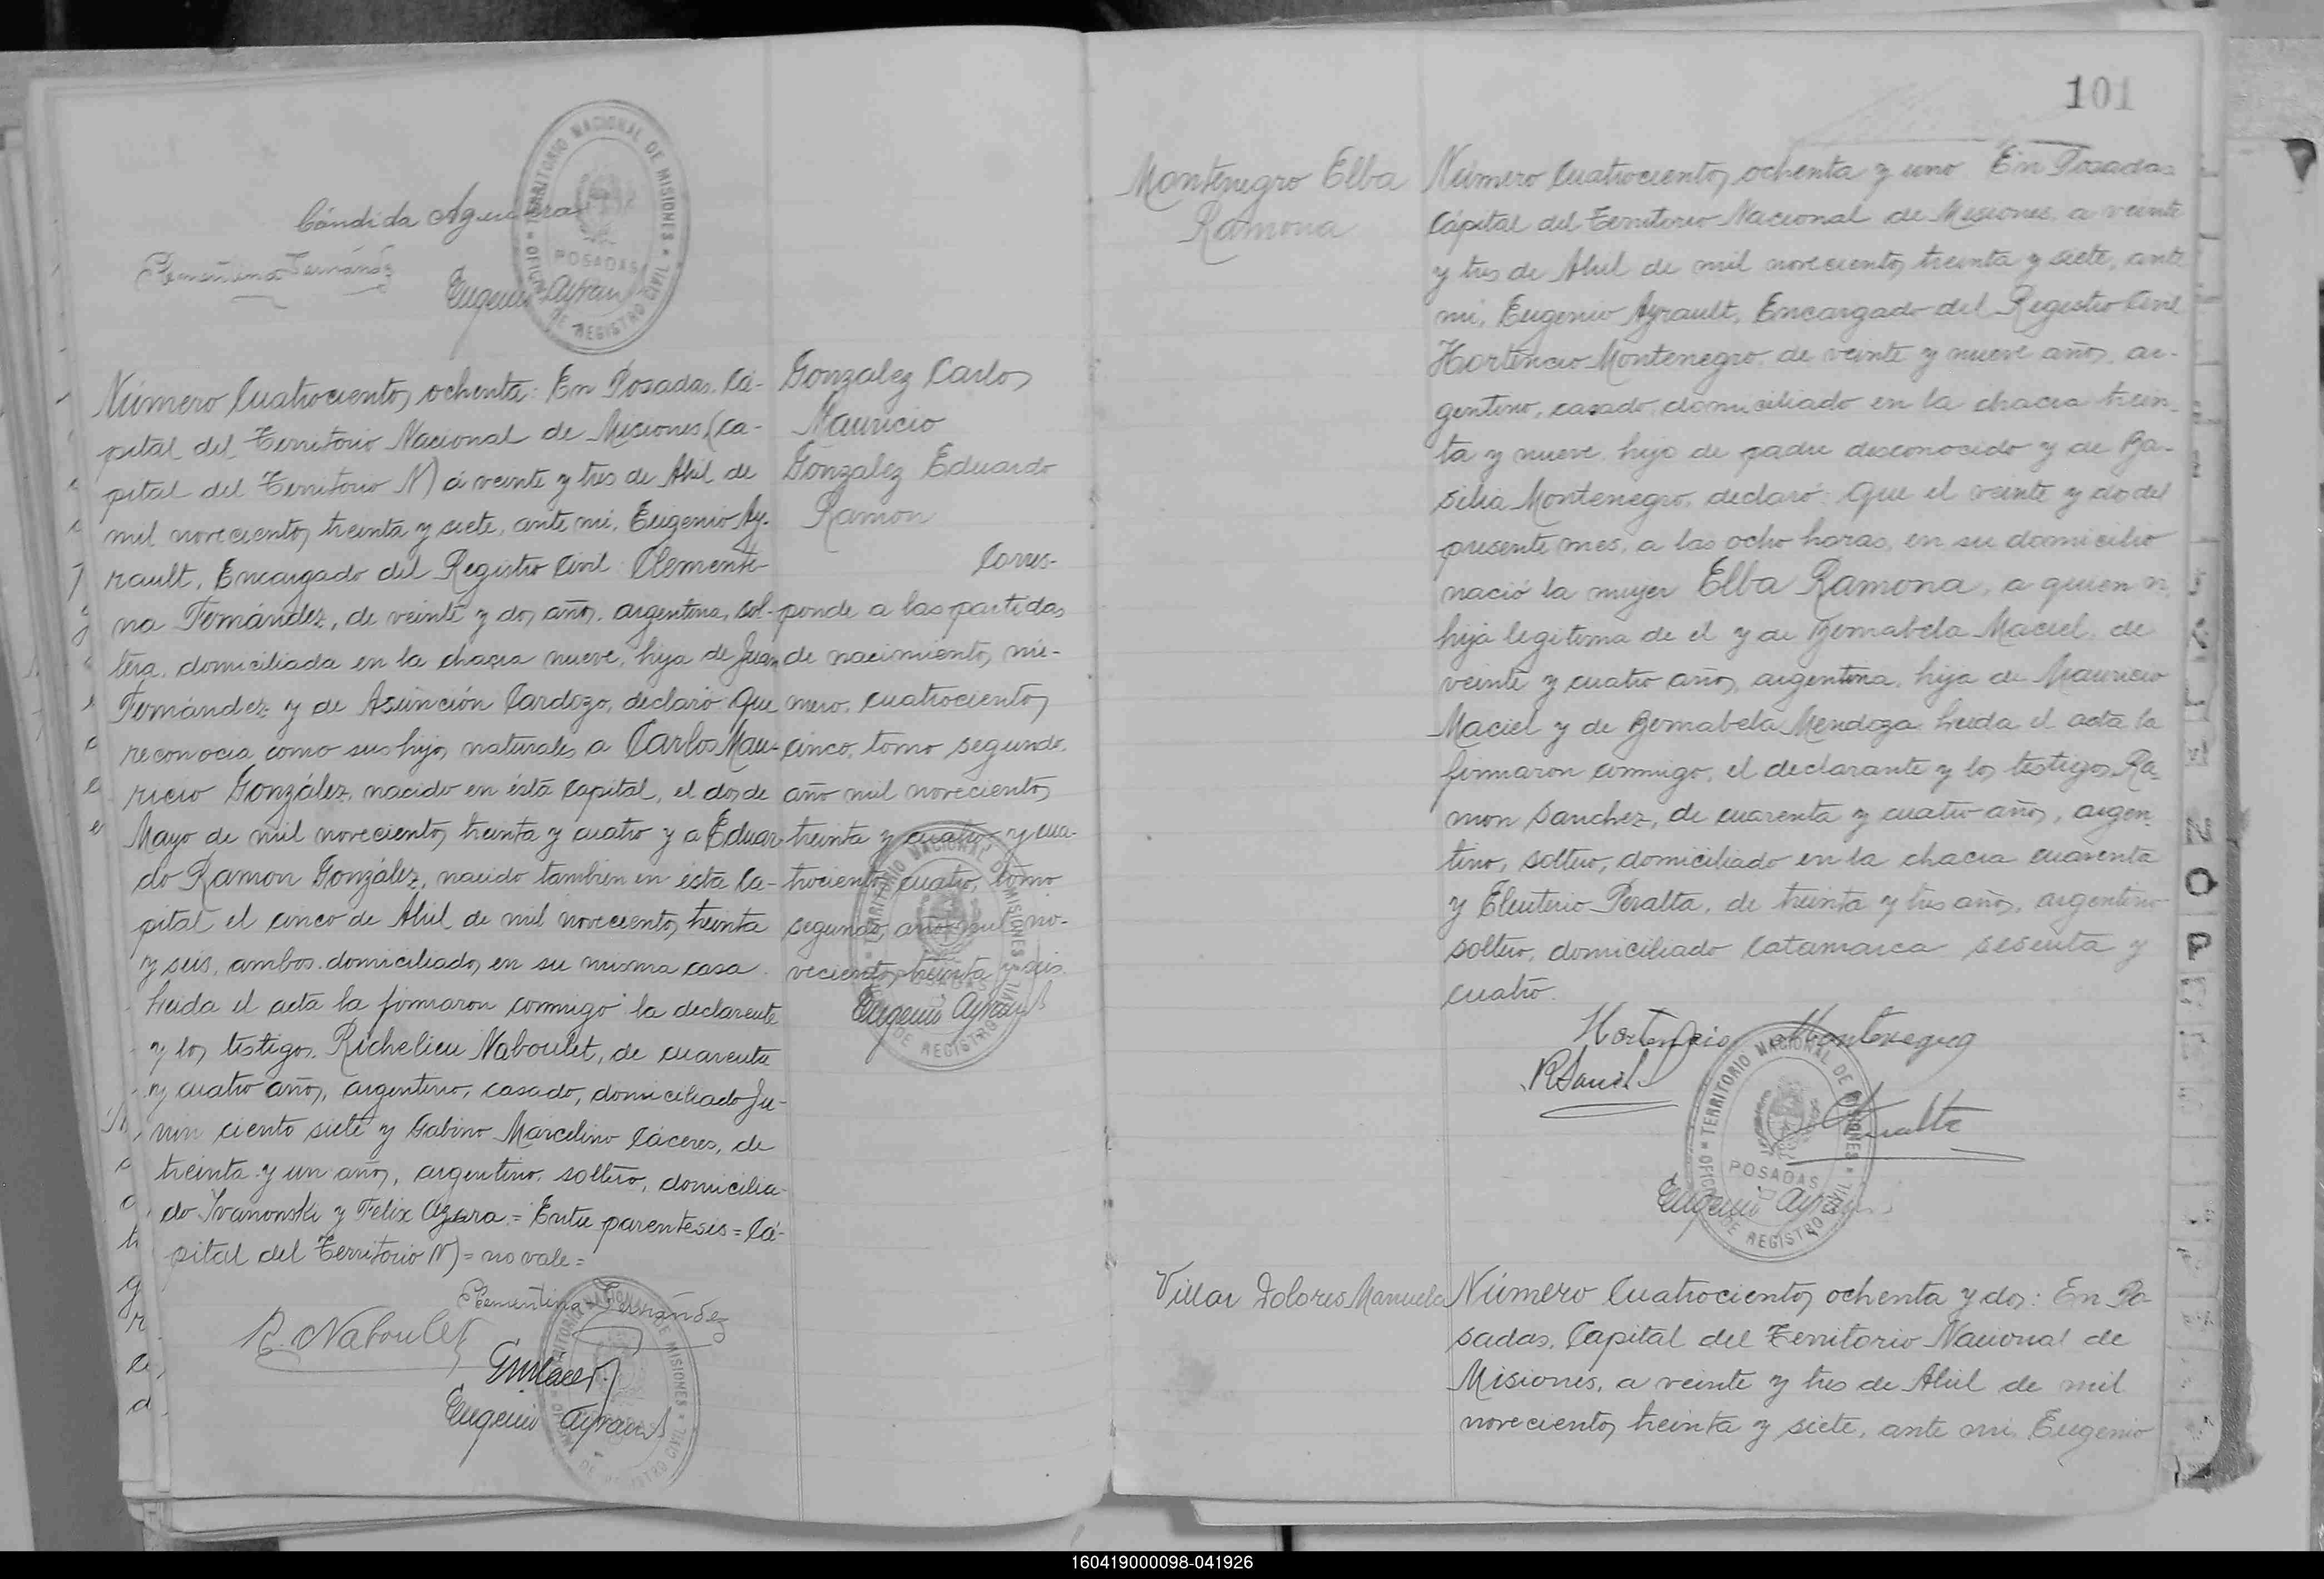 Cándida Aguilera
Clementina Fernández
Eugenio Ayrault
OFICINA DE REGISTRO CIVIL = TERRITORIO NACIONAL DE MISIONES =
POSADAS
Número Cuatrocientos ochenta: En Posadas, Ca-
pital del Territorio Nacional de Misiones, (ca-
pital del Territorio N) á veinte y tres de Abril de
mil novecientos treinta y siete, ante mi, Eugenio Ay-
rault, Encargado del Registro Civil Clementi-
na Fernández, de veinte y dos años, argentina, sol-
tera, domiciliada en la chacra nueve, hija de Juan
Fernández y de Asunción Cardozo, declaró: Que
reconocia como sus hijos naturales a Carlos Mau-
ricio González, nacido en ésta Capital, el dos de
Mayo de mil novecientos treinta y cuatro y a Eduar-
do Ramon González, nacido tambien en ésta Ca-
pital el cinco de Abril de mil novecientos treinta
y seis, ambos domiciliados en su misma casa.
Leida el acta la firmaron conmigo la declarante
y los testigos. Richelieu Naboulet, de cuarenta
y cuatro años, argentino, casado, domiciliado Ju-
nin ciento siete y Gabino Marcelino Cáceres, de
treinta y un años, argentino, soltero, domicilia-
do Ivanonski y Felix Azara = Entre parentesis = Ca-
pital del Territorio N) = no vale =
Clementina Fernández
R. Naboulet
GMCáceres
Eugenio Ayrault
OFICINA DE REGISTRO CIVIL = TERRITORIO NACIONAL DE MISIONES =
Gonzalez Carlos
Mauricio
Gonzalez Eduardo
Ramon
Corres-
ponde a las partidas
de nacimientos nú-
mero, cuatrocientos
cinco, tomo segundo,
año mil novecientos
treinta y cuatro y cua-
trocientos cuatro, tomo
segundo, año mil no-
vecientos treinta y seis.
Eugenio Ayrault
OFICINA DE REGISTRO CIVIL = TERRITORIO NACIONAL DE MISIONES =
POSADAS
101
Montenegro Elba
Ramona
Número Cuatrocientos ochenta y uno En Posadas
Cápital del Territorio Nacional de Misiones, a veinte
y tres de Abril de mil novecientos treinta y siete, ante
mi, Eugenio Ayrault, Encargado del Registro Civil
Hortencio Montenegro de veinte y nueve años, ar-
gentino, casado, domiciliado en la chacra trein-
ta y nueve, hijo de padre desconocido y de Ba-
silia Montenegro, declaró: Que el veinte y do del
presente mes, a las ocho horas, en su domicilio
nació la mujer Elba Ramona, a quien vi,
hija legitima de el y de Bernabela Maciel, de
veinte y cuatro años, argentina, hija de Mauricio
Maciel y de Bernabela Mendoza. Leida el acta la
firmaron conmigo, el declarante y los testigos, Ra-
mon Sanchez, de cuarenta y cuatro años, argen-
tino, soltero, domiciliado en la chacra cuarenta
y Eleuterio Peralta, de treinta y tres años, argentino
soltero, domiciliado Catamarca sesenta y
cuatro.
Hortencio Montenegro
Peralta
Eugenio Ayrault
OFICINA DE REGISTRO CIVIL = TERRITORIO NACIONAL DE MISIONES =
POSADAS
Villar Dolores Manuela
Número Cuatrocientos ochenta y dos: En Po-
sadas, Capital del Territorio Nacional de
Misiones, a veinte y tres de Abril de mil
novecientos treinta y siete, ante mi, Eugenio
160419000098-041926